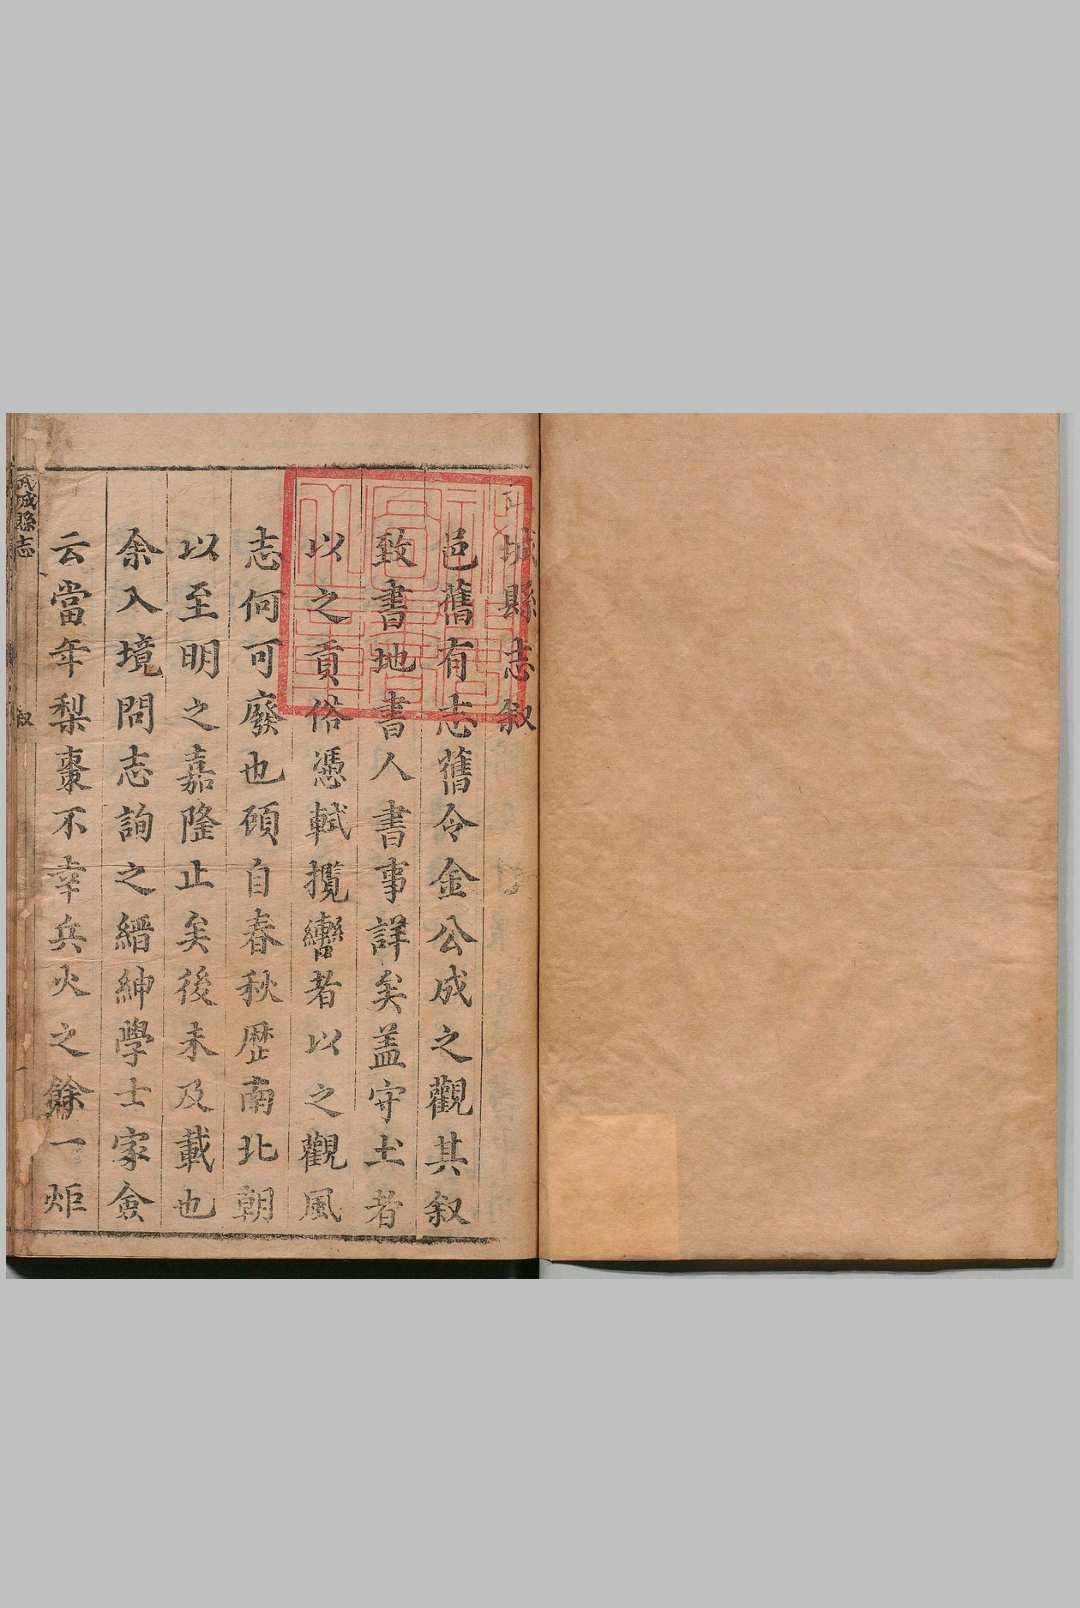 武城縣志叙
邑舊有志舊令金公成之觀其叙
致書地書人書事詳矣盖守土者
以之貢俗憑軾攬轡者以之觀風
志何可廢也頋自春秋歴南北朝
以至明之嘉隆止矣後未及載也
余入境問志詢之縉紳學士家僉
云當年梨棗不幸兵火之餘一炬
武城縣志
叙
一